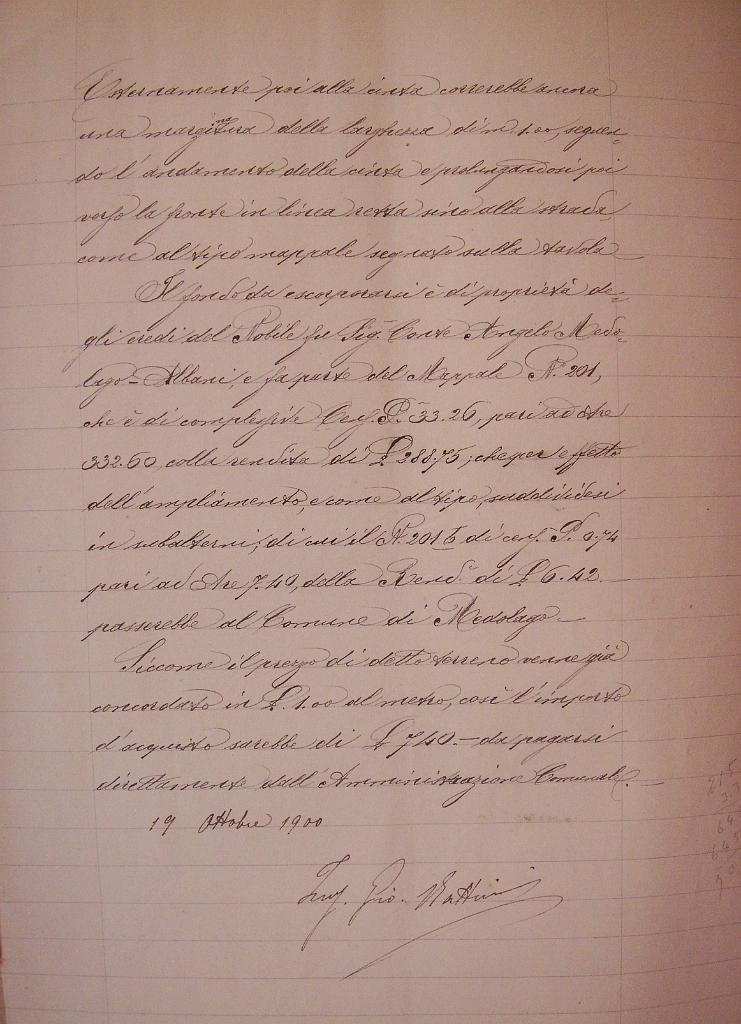 Esternamente poi alla cinta correrebbe ancora
una marginatura della larghezza di m. 1.00, seguen-
do l'andamento della cinta e prolungandosi poi
verso la fronte in linea retta sino alla strada
come al tipo mappale segnato sulla tavola
Il fondo da escorporarsi è di proprietà de-
gli eredi del Nobile fu Sig. Conte Angelo Medo-
lago-Albani, e fa parte del Mappale N. 201,
che è di complessive Cens. P. 33.26, pari ad Are
332.60, colla rendita di £ 288.75; che per effetto
dell'ampliamento, e come al tipo, suddividesi
in subalterni, di cui il N. 201 b di cens. P. 0.74
pari ad Are 7.40, della Rend. di £ 6.42
passerebbe al Comune di Medolago
Siccome il prezzo di detto terreno venne già
concordato in £. 1.00 al metro, così l'importo
d'acquisto sarebbe di £ 740.- da pagarsi
direttamente dall'Amministrazione Comunale.
19 Ottobre 1900
Ing. Gio.